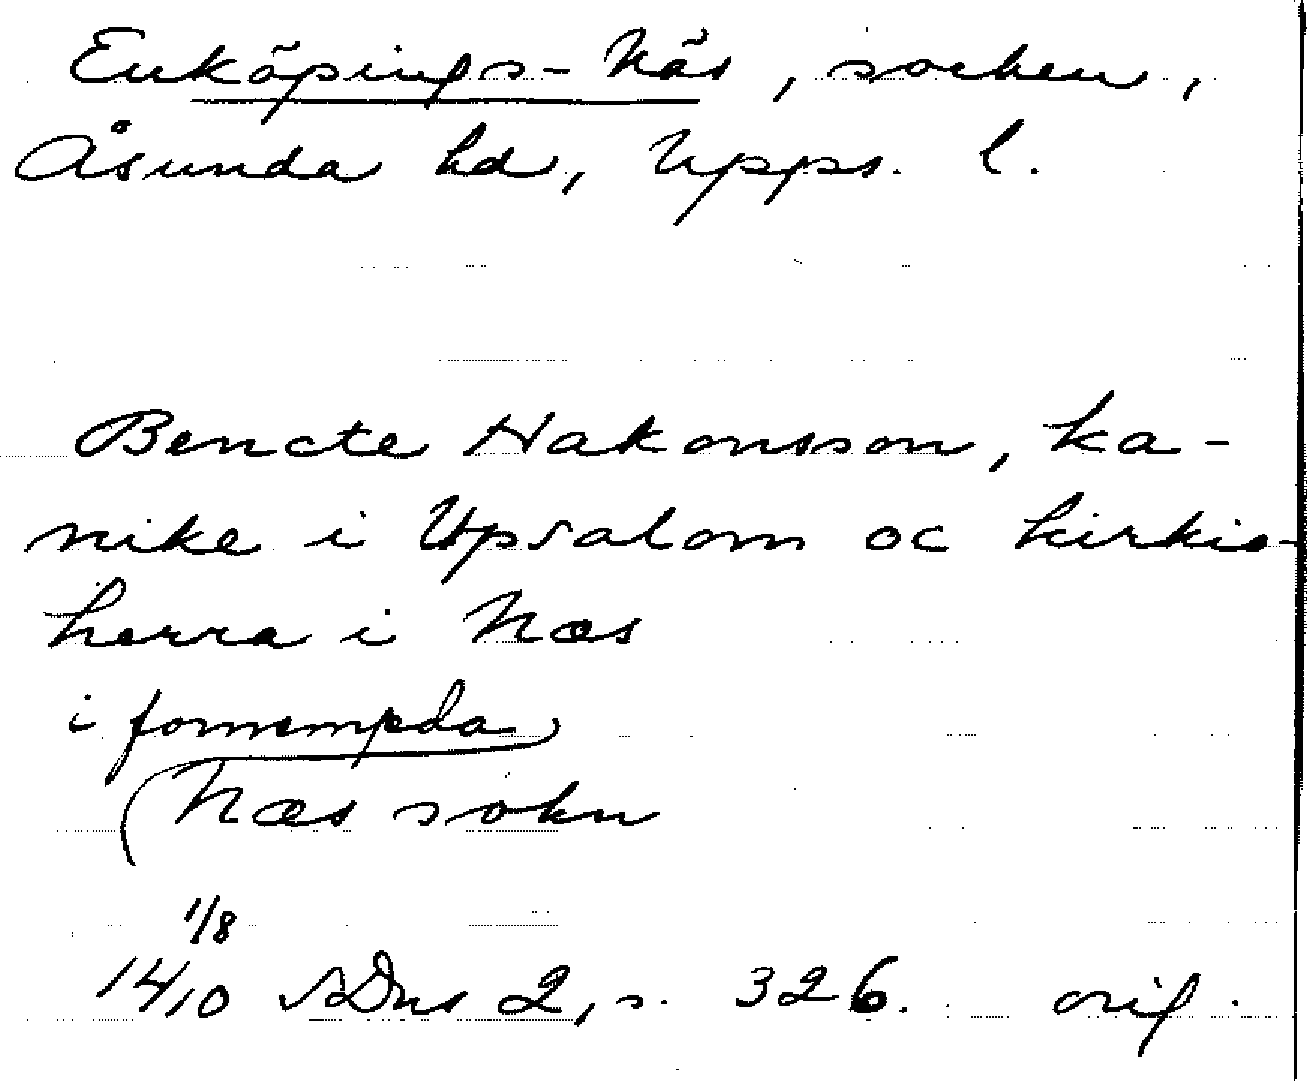 Enköpings-Näs, socken,
Åsunda hd, Upps. l.
Bencte Hakonsson, ka-
nike i Upsalom oc kirkio-
herra i Næs
i fornempda
Næs sokn
1/8
14/10 SDns 2, s. 326. orig.